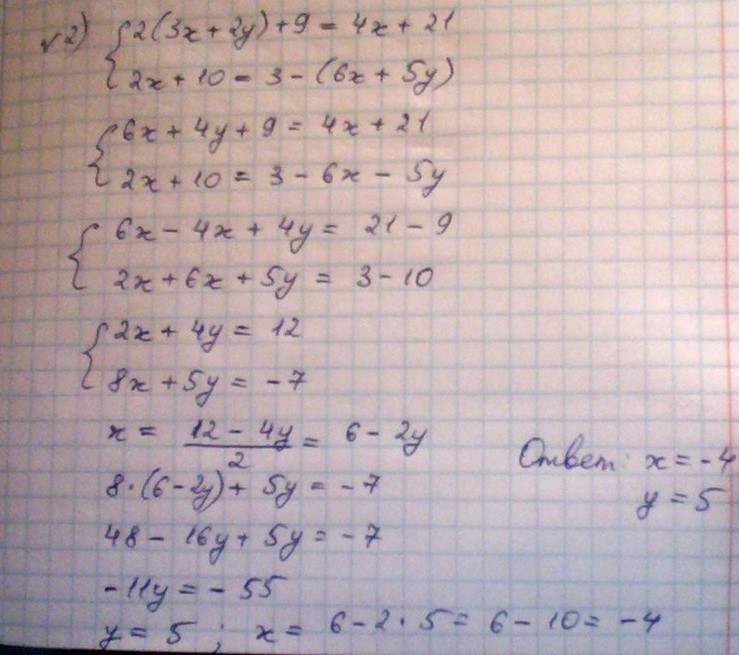 √2) { 2(3x + 2y) + 9 = 4x + 21
2x + 10 = 3 - (6x + 5y)
{ 6x + 4y + 9 = 4x + 21
2x + 10 = 3 - 6x - 5y
{ 6x - 4x + 4y = 21 - 9
2x + 6x + 5y = 3 - 10
{ 2x + 4y = 12
8x + 5y = -7
x = (12 - 4y)/2 = 6 - 2y
8·(6 - 2y) + 5y = -7
48 - 16y + 5y = -7
-11y = -55
y = 5 ; x = 6 - 2·5 = 6 - 10 = -4
Ответ: x = -4
y = 5